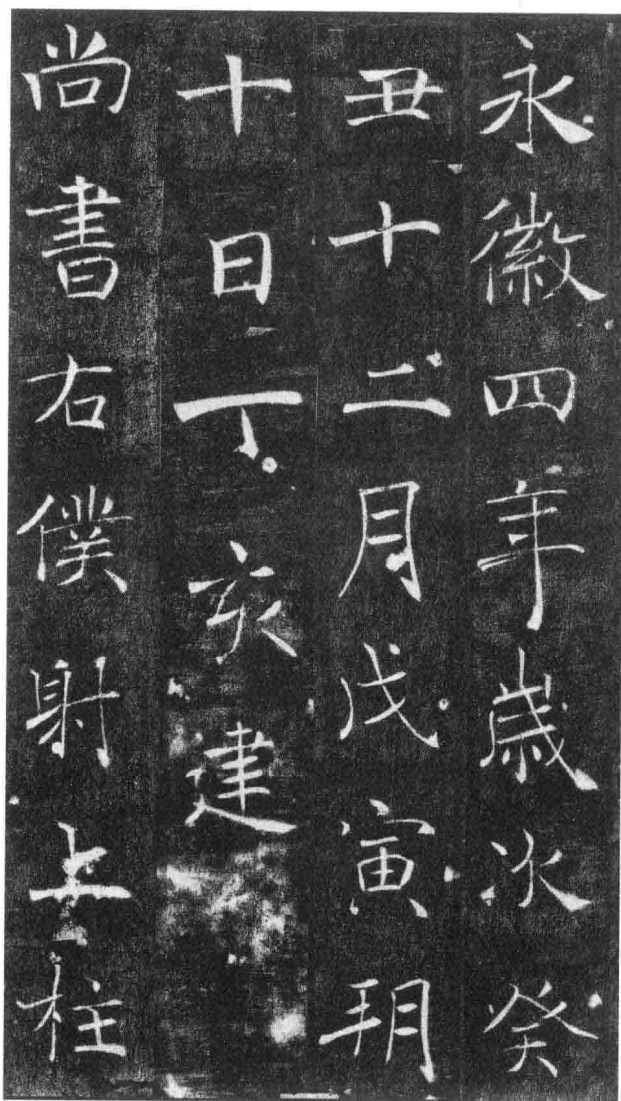 永徽四年歲次癸
丑十二月戊寅朔
十日丁亥建
尚書右僕射上柱